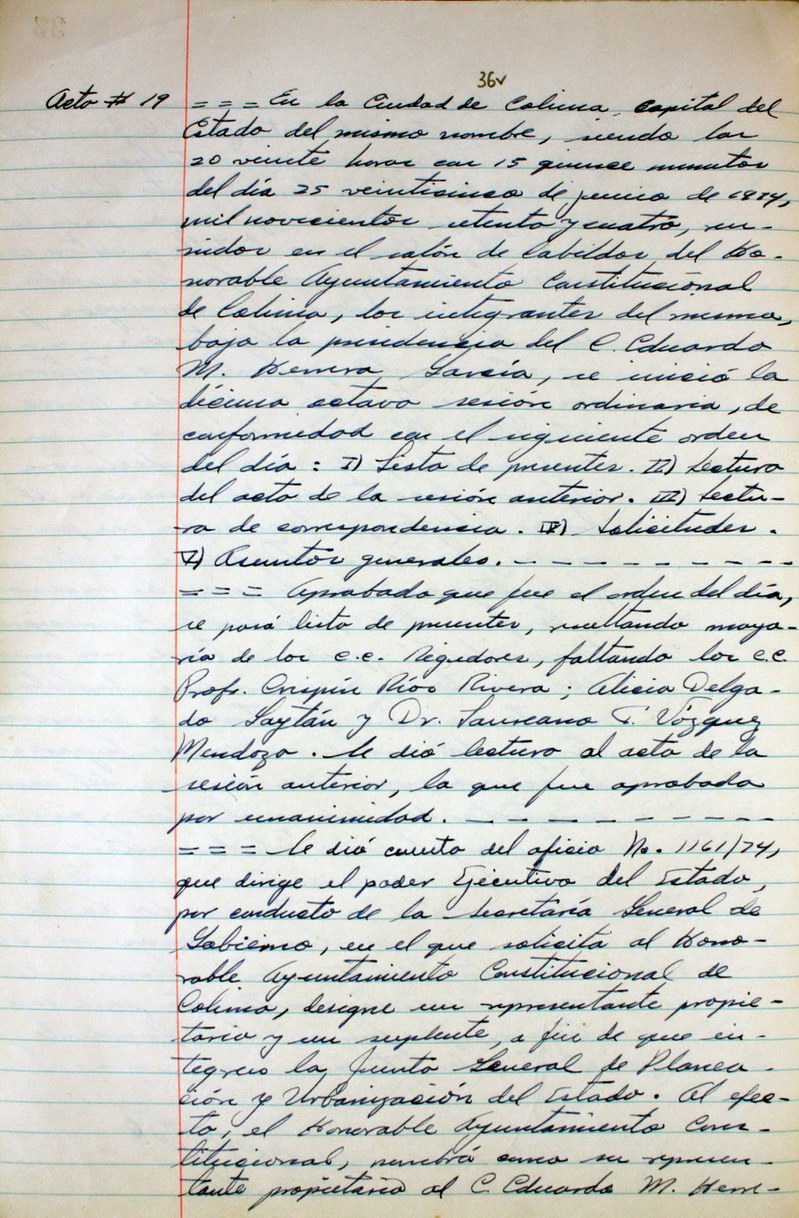 36v
Acta # 19 = = = En la Ciudad de Colima, capital del
Estado del mismo nombre, siendo las
20 veinte horas con 15 quince minutos
del día 25 veinticinco de junio de 1974,
mil novecientos setenta y cuatro, reu-
nidos en el salón de Cabildos, del Ho-
norable Ayuntamiento Constitucional
de Colima, los integrantes del mismo,
bajo la presidencia del C. Eduardo
M. Herrera García, se inició la
décima octava sesión ordinaria, de
conformidad con el siguiente orden
del día: I) Lista de presentes. II) Lectura
del acta de la sesión anterior. III) Lectu-
ra de correspondencia. IV) Solicitudes.
V) Asuntos generales. - - - - - - - - -
= = = Aprobado que fue el orden del día,
se pasó lista de presentes, resultando mayo-
ría de los c.c. Regidores, faltando los c.c.
Profr. Crispín Ríos Rivera; Alicia Delga-
do Gaytán y Dr. Laureano T. Vázquez
Mendoza. Se dió lectura al acta de la
sesión anterior, la que fue aprobada
por unanimidad. - - - - - - - - - -
= = = Se dió cuenta del oficio No. 1161/74,
que dirige el poder Ejecutivo del Estado,
por conducto de la Secretaría General de
Gobierno, en el que solicita al Hono-
rable Ayuntamiento Constitucional de
Colima, designe un representante propie-
tario y un suplente, a fin de que in-
tegren la Junta General de Planea-
ción y Urbanización del Estado. Al efec-
to, el Honorable Ayuntamiento Cons-
titucional, nombró como su represen-
tante propietario al C. Eduardo M. Herre-